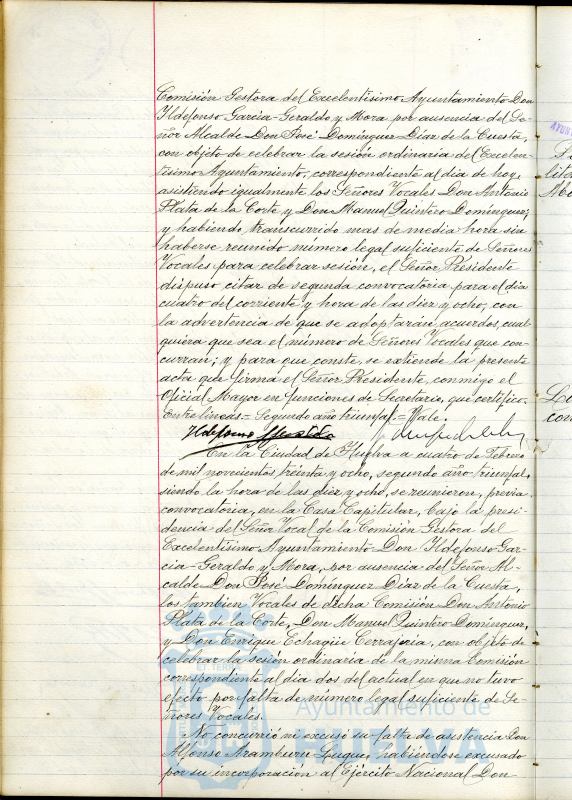 Comisión Gestora del Excelentísimo Ayuntamiento Don
Ildefonso Garcia-Geraldo y Mora por ausencia del Se-
ñor Alcalde Don José Domínguez Diaz de la Cuesta,
con objeto de celebrar la sesión ordinaria del Excelen-
tísimo Ayuntamiento, correspondiente al dia de hoy,
asistiendo igualmente los Señores Vocales Don Antonio
Plata de la Corte y Don Manuel Quintero Dominguez;
y habiendo transcurrido mas de media hora sin
haberse reunido número legal suficiente de Señores
Vocales para celebrar sesión, el Señor Presidente
dispuso citar de segunda convocatoria para el dia
cuatro del corriente y hora de las diez y ocho, con
la advertencia de que se adoptaran acuerdos, cual
quiera que sea el número de Señores Vocales que con-
curran; y para que conste, se extiende la presente
acta que firma el Señor Presidente, conmigo el
Oficial Mayor en funciones de Secretario, que certifico.
Entre lineas = Segundo año triunfal = Vale.
Ildefonso
En la Ciudad de Huelva a cuatro de Febrero
de mil novecientos treinta y ocho, segundo año triunfal,
siendo la hora de las diez y ocho, se reunieron, previa
convocatoria, en la Casa Capitular, bajo la presi-
dencia del Señor Vocal de la Comisión Gestora del
Excelentísimo Ayuntamiento Don Ildefonso Gar-
cia-Geraldo y Mora, por ausencia del Señor Al-
calde Don José Domínguez Diaz de la Cuesta,
los tambien Vocales de dicha Comisión Don Antonio
Plata de la Corte, Don Manuel Quintero Dominguez,
y Don Enrique Echagüe Cerrajeria, con objeto de
celebrar la sesión ordinaria de la misma Comisión
correspondiente al dia dos del actual en que no tuvo
efecto por falta de número legal suficiente de Se-
ñores Vocales.
Ayuntamiento de
HUELVA
No concurrió ni excusó su falta de asistencia Don
Alfonso Aramburu Luque, habiendose excusado
por su incorporación al Ejército Nacional Don